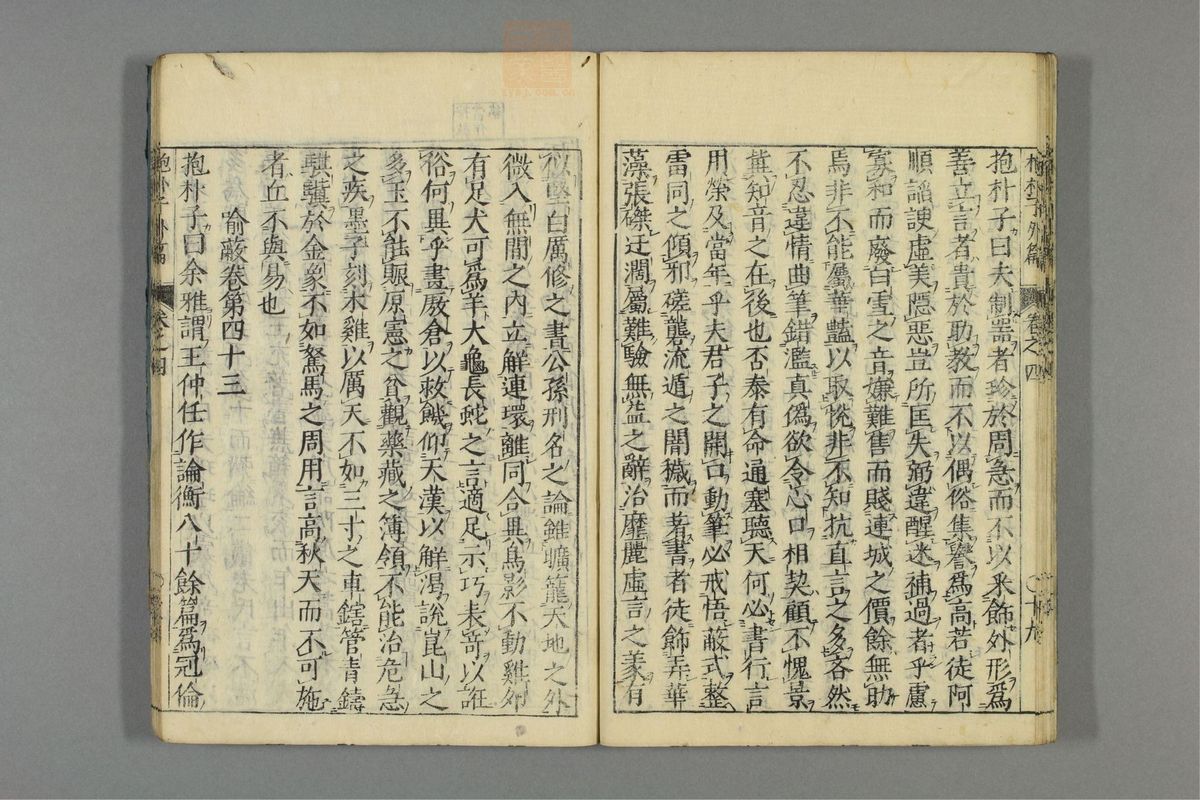 抱朴子外篇 卷之四 十九
抱朴子曰夫制器者珍於周急而不以采飾外形爲
善立言者貴於助敎而不以偶俗集譽爲高若徒阿
順諂諛虛美隱惡豈所匡失弼違醒迷補過者乎慮
寡和而廢白雪之音嫌難售而賤連城之價餘無助
焉非不能屬華豔以取悅非不知抗直言之多吝然
不忍違情曲筆錯濫真僞欲令心口相契顧不愧景
冀知音之在後也否泰有命通塞聽天何必書行言
用榮及當年乎夫君子之開口動筆必戒悟蔽式整
雷同之傾邪磋礱流遁之闇穢而著書者徒飾弄華
藻張磔迂濶屬難驗無益之辭治靡麗虛言之美有
似堅白厲修之書公孫刑名之論雖曠籠天地之外
微入無間之內立解連環離同合異鳥影不動雞卵
有足犬可爲羊大龜長蛇之言適足示巧表奇以誑
俗何異乎畫敖倉以救饑仰天漢以解渴說崑山之
多玉不能賑原憲之貧觀藥藏之簿領不能治危急
之疾墨子刻木雞以厲天不如三寸之車鎋管青鑄
騏驥於金象不如駑馬之周用言高秋天而不可施
者丘不與易也
喻蔽卷第四十三
抱朴子曰余雅謂王仲任作論衡八十餘篇爲冠倫